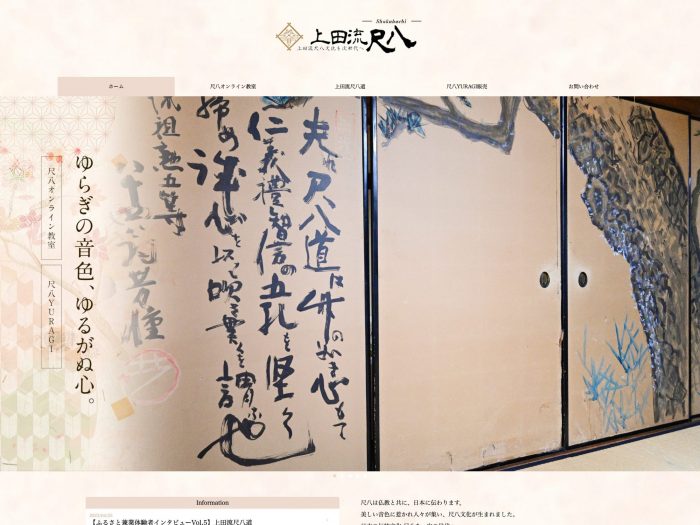 Shakuhachi
上田流尺八
上田流尺八文化を次世代へ
ホーム
尺八オンライン教室
上田流尺八道
尺八YURAGI販売
お問い合わせ
ゆらぎの音色、ゆるがぬ心。
尺八オンライン教室
尺八YURAGI
夫れ尺八道は竹の如き心もて
仁義禮智信の五孔を堅く
Information
【ふるさと兼業体験者インタビューVol.5】上田流尺八道
尺八は仏教と共に、日本に伝わります。
美しい音色に惹かれ人々が集い、尺八文化が生まれました。